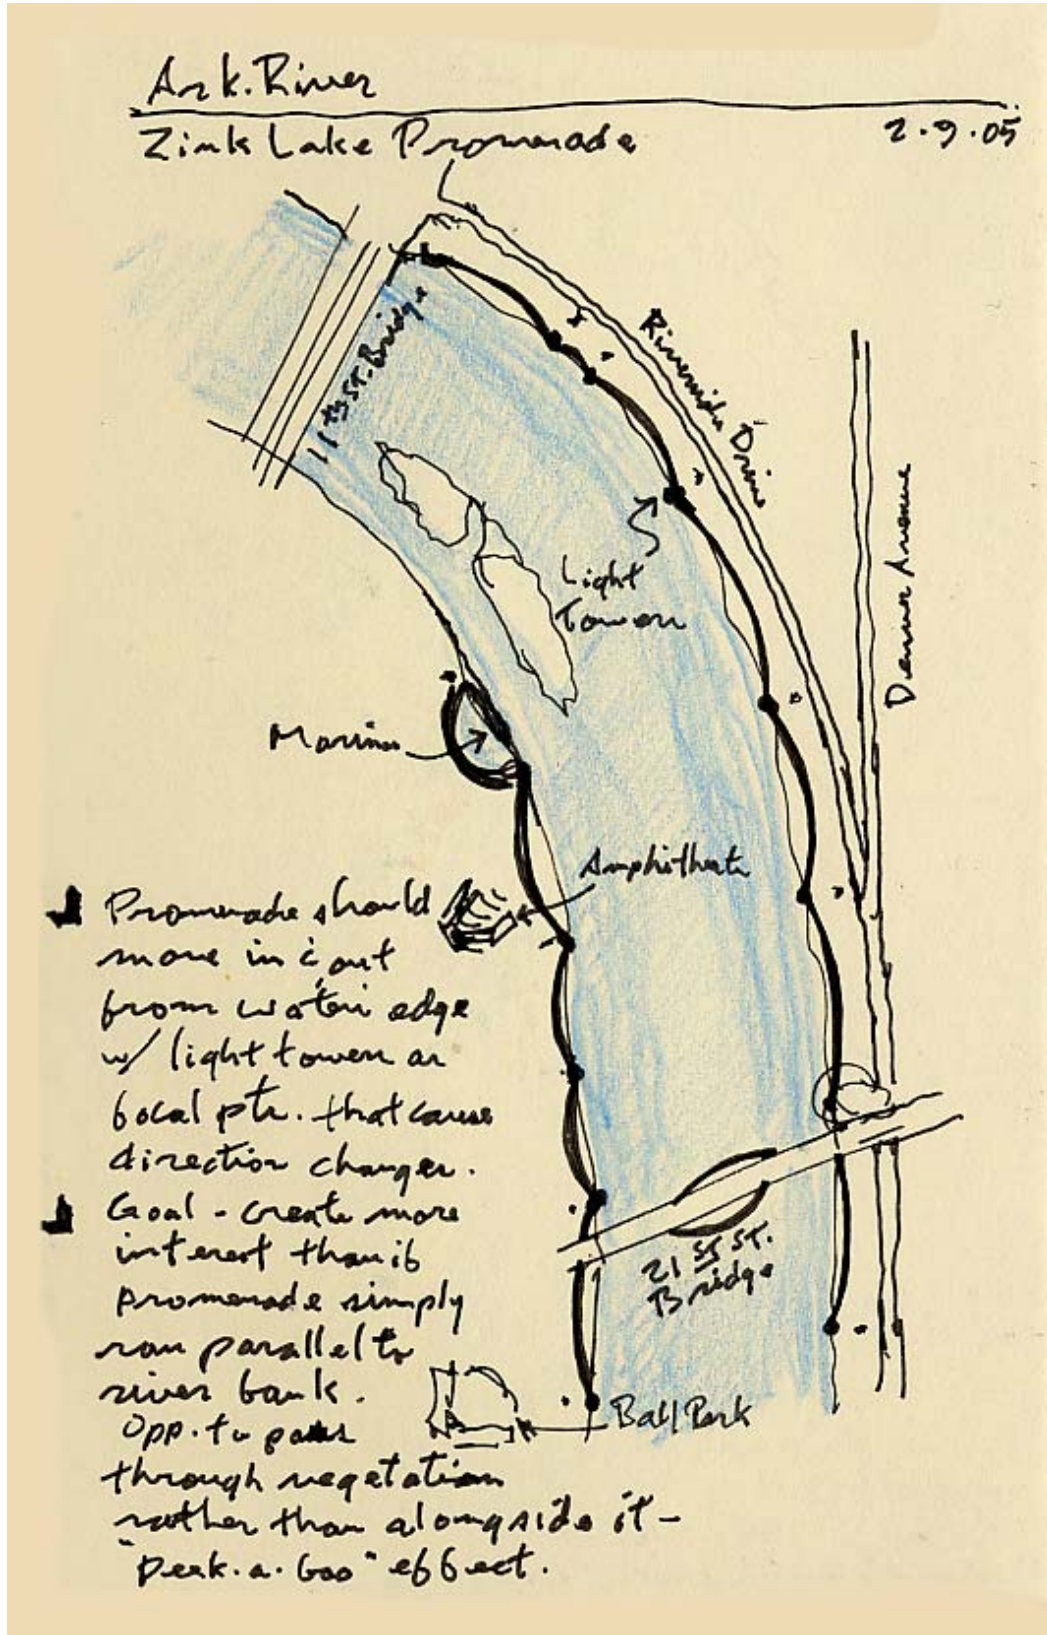 Ark. River
Zink Lake Promenade
2.9.05
11th ST. Bridge
Riverside Drive
Denver Avenue
Light
Towers
Marina
Amphitheatr
Promenade should
move in & out
from waters edge
w/ light towers as
focal pts. that cause
direction changes.
Goal - create more
interest than if
promenade simply
ran parallel to
river bank.
Opp. to pass
through vegetation
rather than alongside it -
"Peek-a-boo" effect.
21 ST ST.
Bridge
Ball Park